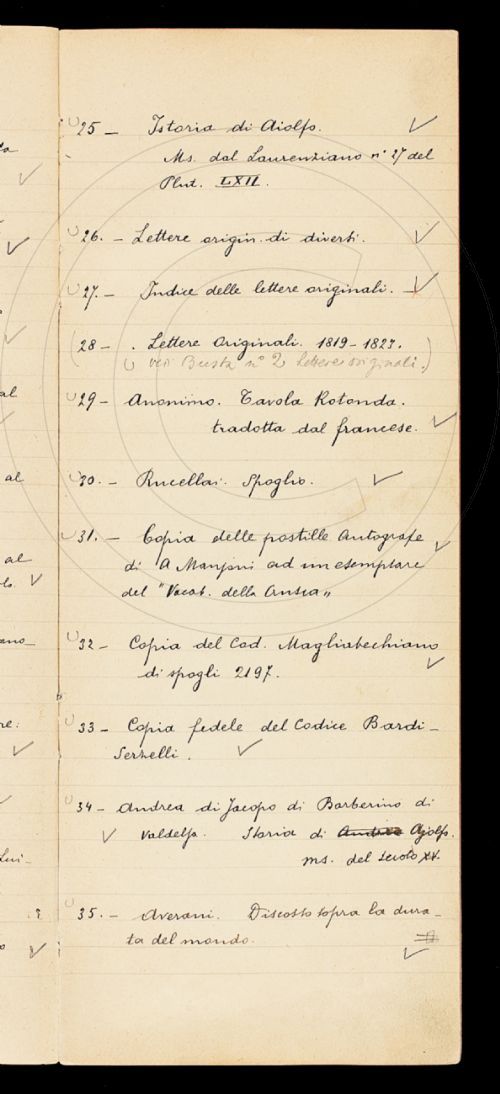 25 - Istoria di Aiolfo.
Ms. dal Laurenziano n° 27 del
Plut. LXII.
26. - Lettere origin. di diversi.
27. - Indice delle lettere originali. -
(28 - . Lettere Originali. 1819-1823. )
vedi Busta n° 2 lettere originali.
29 - Anonimo. Tavola Rotonda.
tradotta dal francese.
30. - Rucellai. Spoglio.
31. - Copia delle postille autografe
di A Manzoni ad un esemplare
del "Vocab. della Crusca"
32 - Copia del Cod. Magliabechiano
di spogli 2197.
33 - Copia fedele del Codice Bardi-
Serzelli.
34 - Andrea di Jacopo di Barberino di
Valdelsa. Storia di Andrea Ajolfo.
ms. del secolo XV.
35. - Averani. Discosso sopra la dura-
ta del mondo.